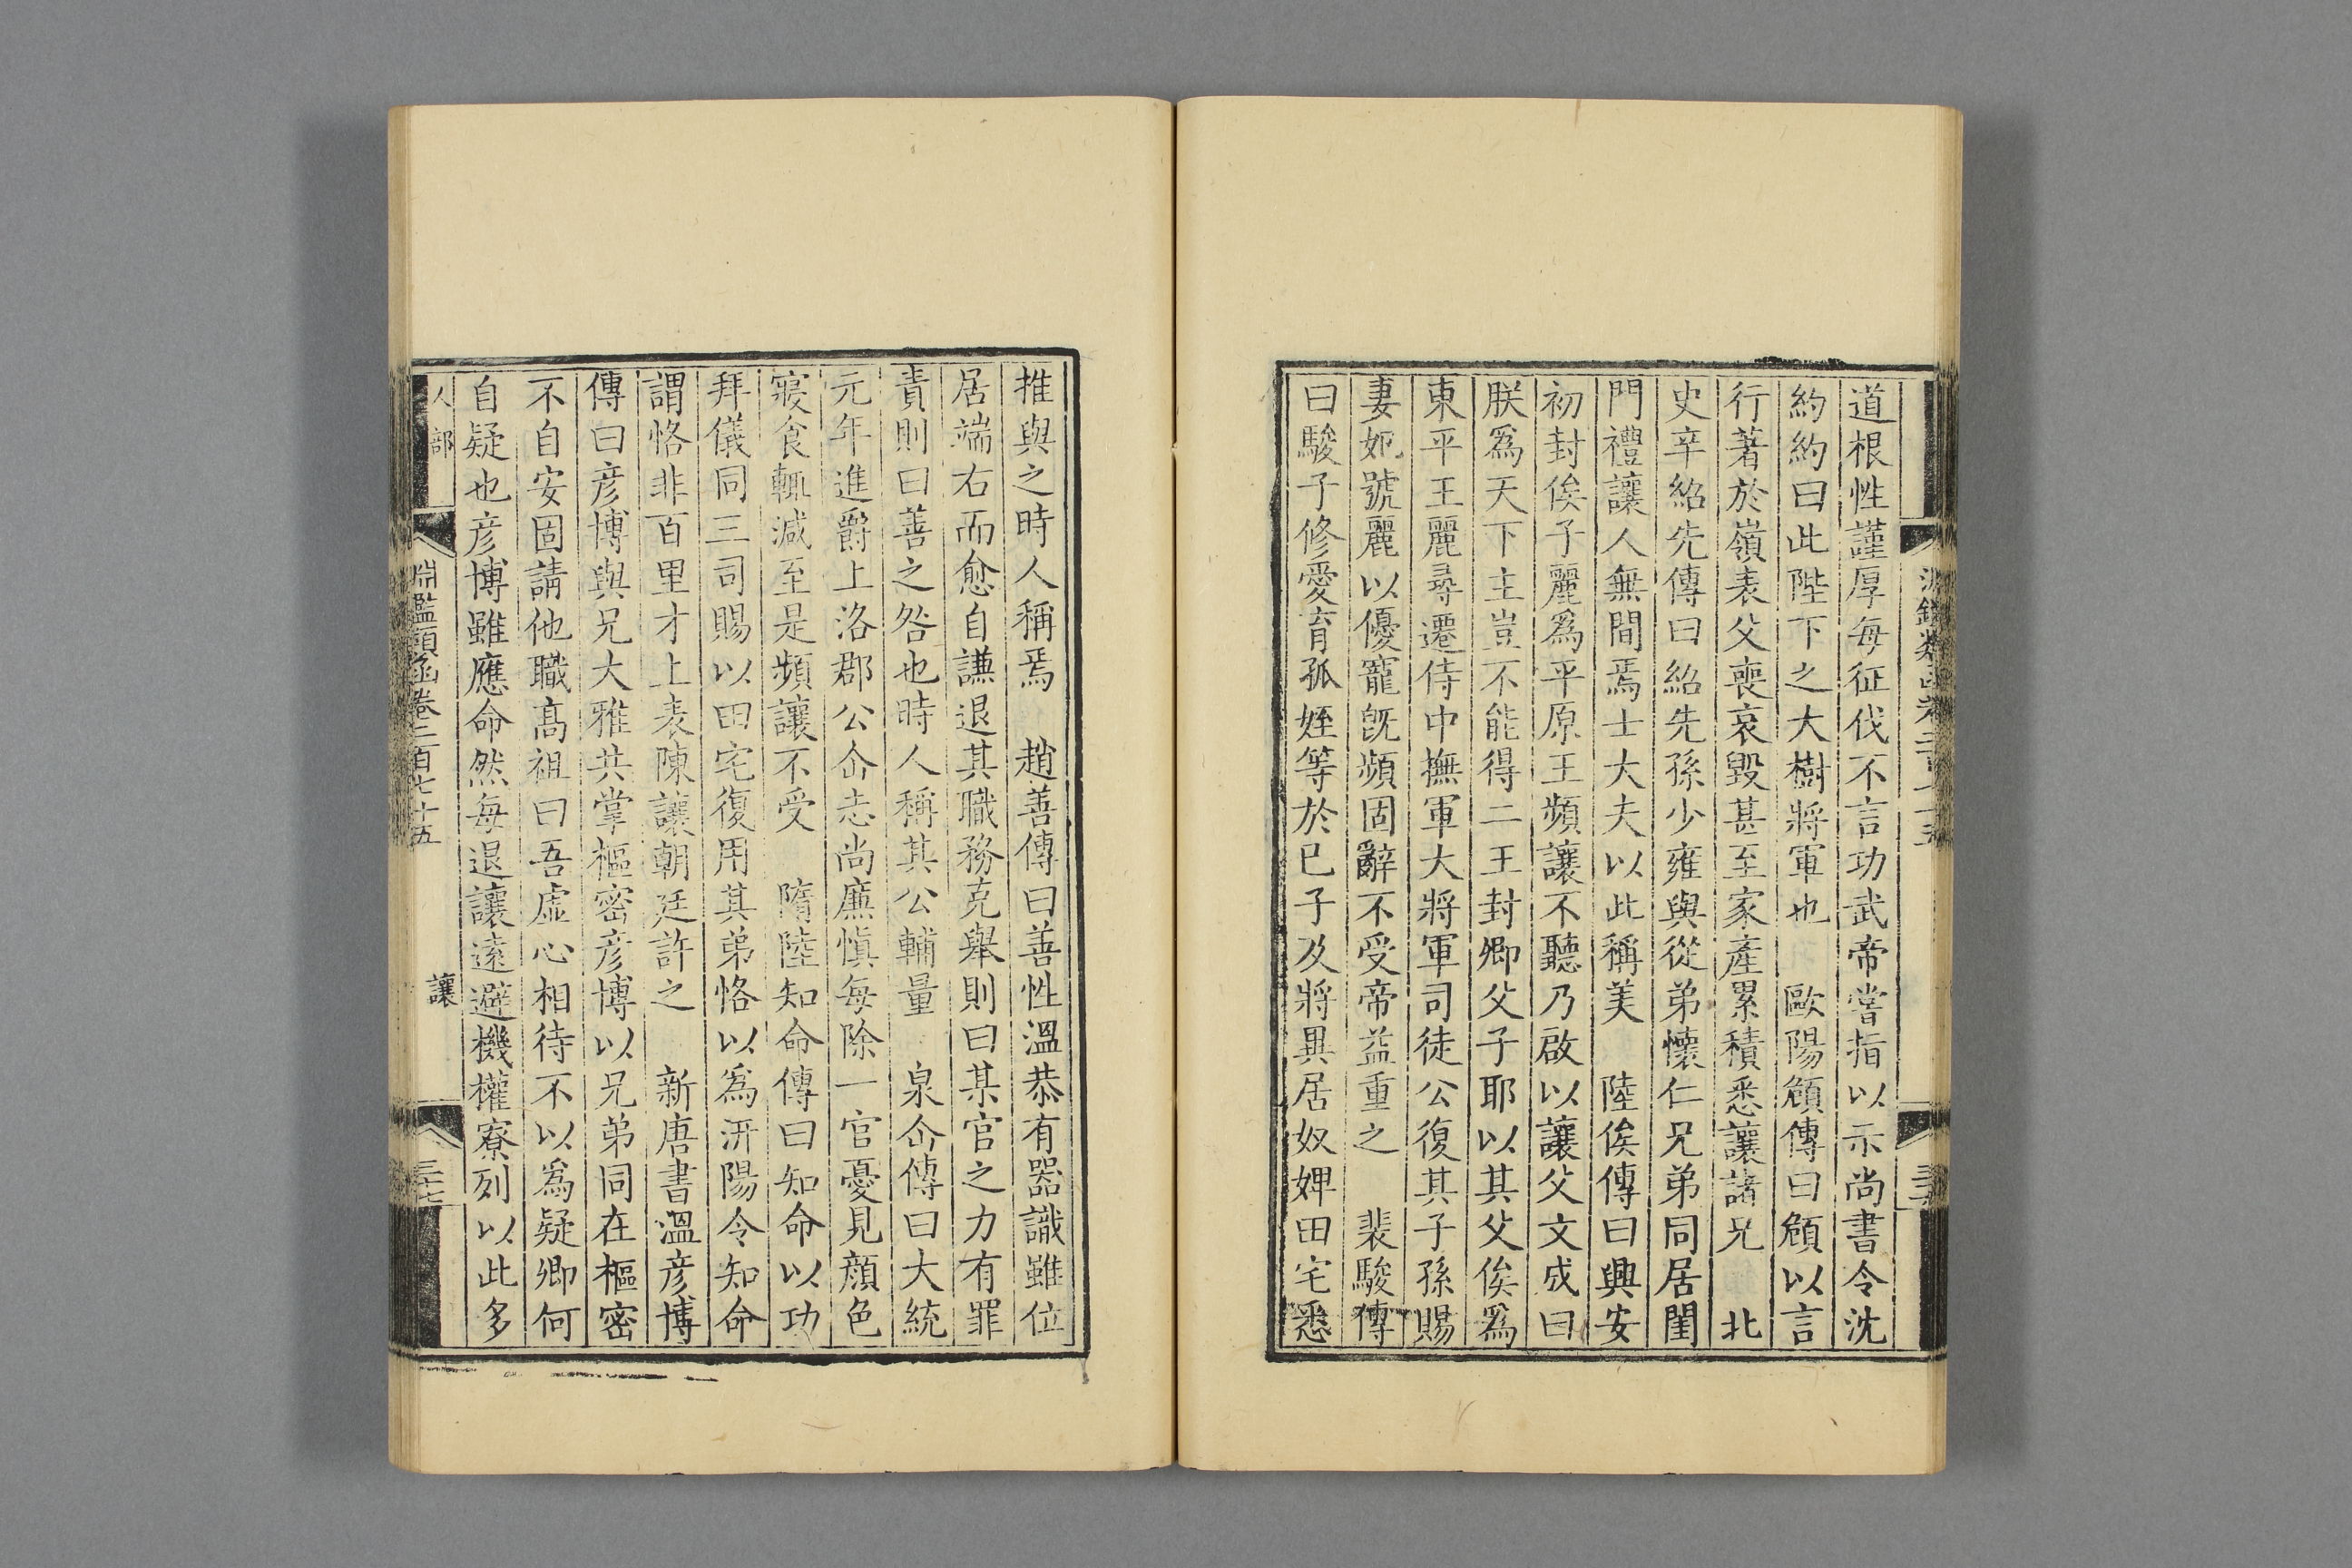 道根性謹厚每征伐不言功武帝嘗指以示尚書令沈
約約曰此陛下之大樹將軍也　歐陽頠傳曰頠以言
行著於嶺表父喪哀毀甚至家產累積悉讓諸兄　北
史辛紹先傳曰紹先孫少雍與從弟懷仁兄弟同居閨
門禮讓人無間焉士大夫以此稱美　陸俟傳曰興安
初封俟子麗爲平原王頻讓不聽乃啟以讓父文成曰
朕爲天下主豈不能得二王封卿父子耶以其父俟爲
東平王麗尋遷侍中撫軍大將軍司徒公復其子孫賜
妻妃號麗以優寵旣頻固辭不受帝益重之　裴駿傳
曰駿子修愛育孤姪等於已子及將異居奴婢田宅悉
推與之時人稱焉　趙善傳曰善性溫恭有器識雖位
居端右而愈自謙退其職務克舉則曰某官之力有罪
責則曰善之咎也時人稱其公輔量　泉仚傳曰大統
元年進爵上洛郡公仚志尚廉愼每除一官憂見顏色
寢食輒減至是頻讓不受　隋陸知命傳曰知命以功
拜儀同三司賜以田宅復用其弟恪以爲汧陽令知命
謂恪非百里才上表陳讓朝廷許之　新唐書溫彥博
傳曰彥博與兄大雅共掌樞密彥博以兄弟同在樞密
不自安固請他職高祖曰吾虛心相待不以爲疑卿何
自疑也彥博雖應命然每退讓遠避機權寮列以此多
人部　淵鑑類函卷二百七十五　讓　三十七